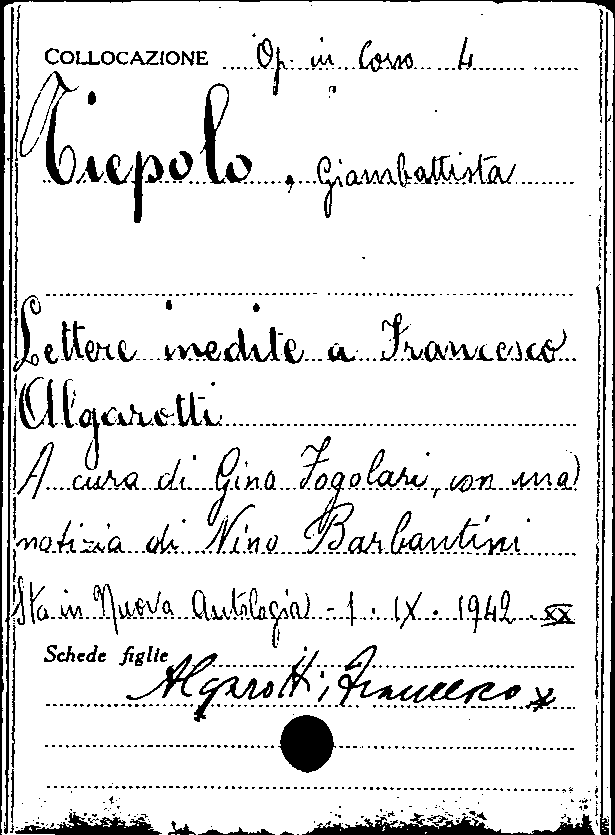 COLLOCAZIONE Op. in Corso 4
Tiepolo, Giambattista
Lettere inedite a Francesco
Algarotti
A cura di Gino Fogolari, con una
notizia di Nino Barbantini
Sta in Nuova Antologia - 1. IX. 1942. XX
Schede figlie
Algarotti, Francesco x